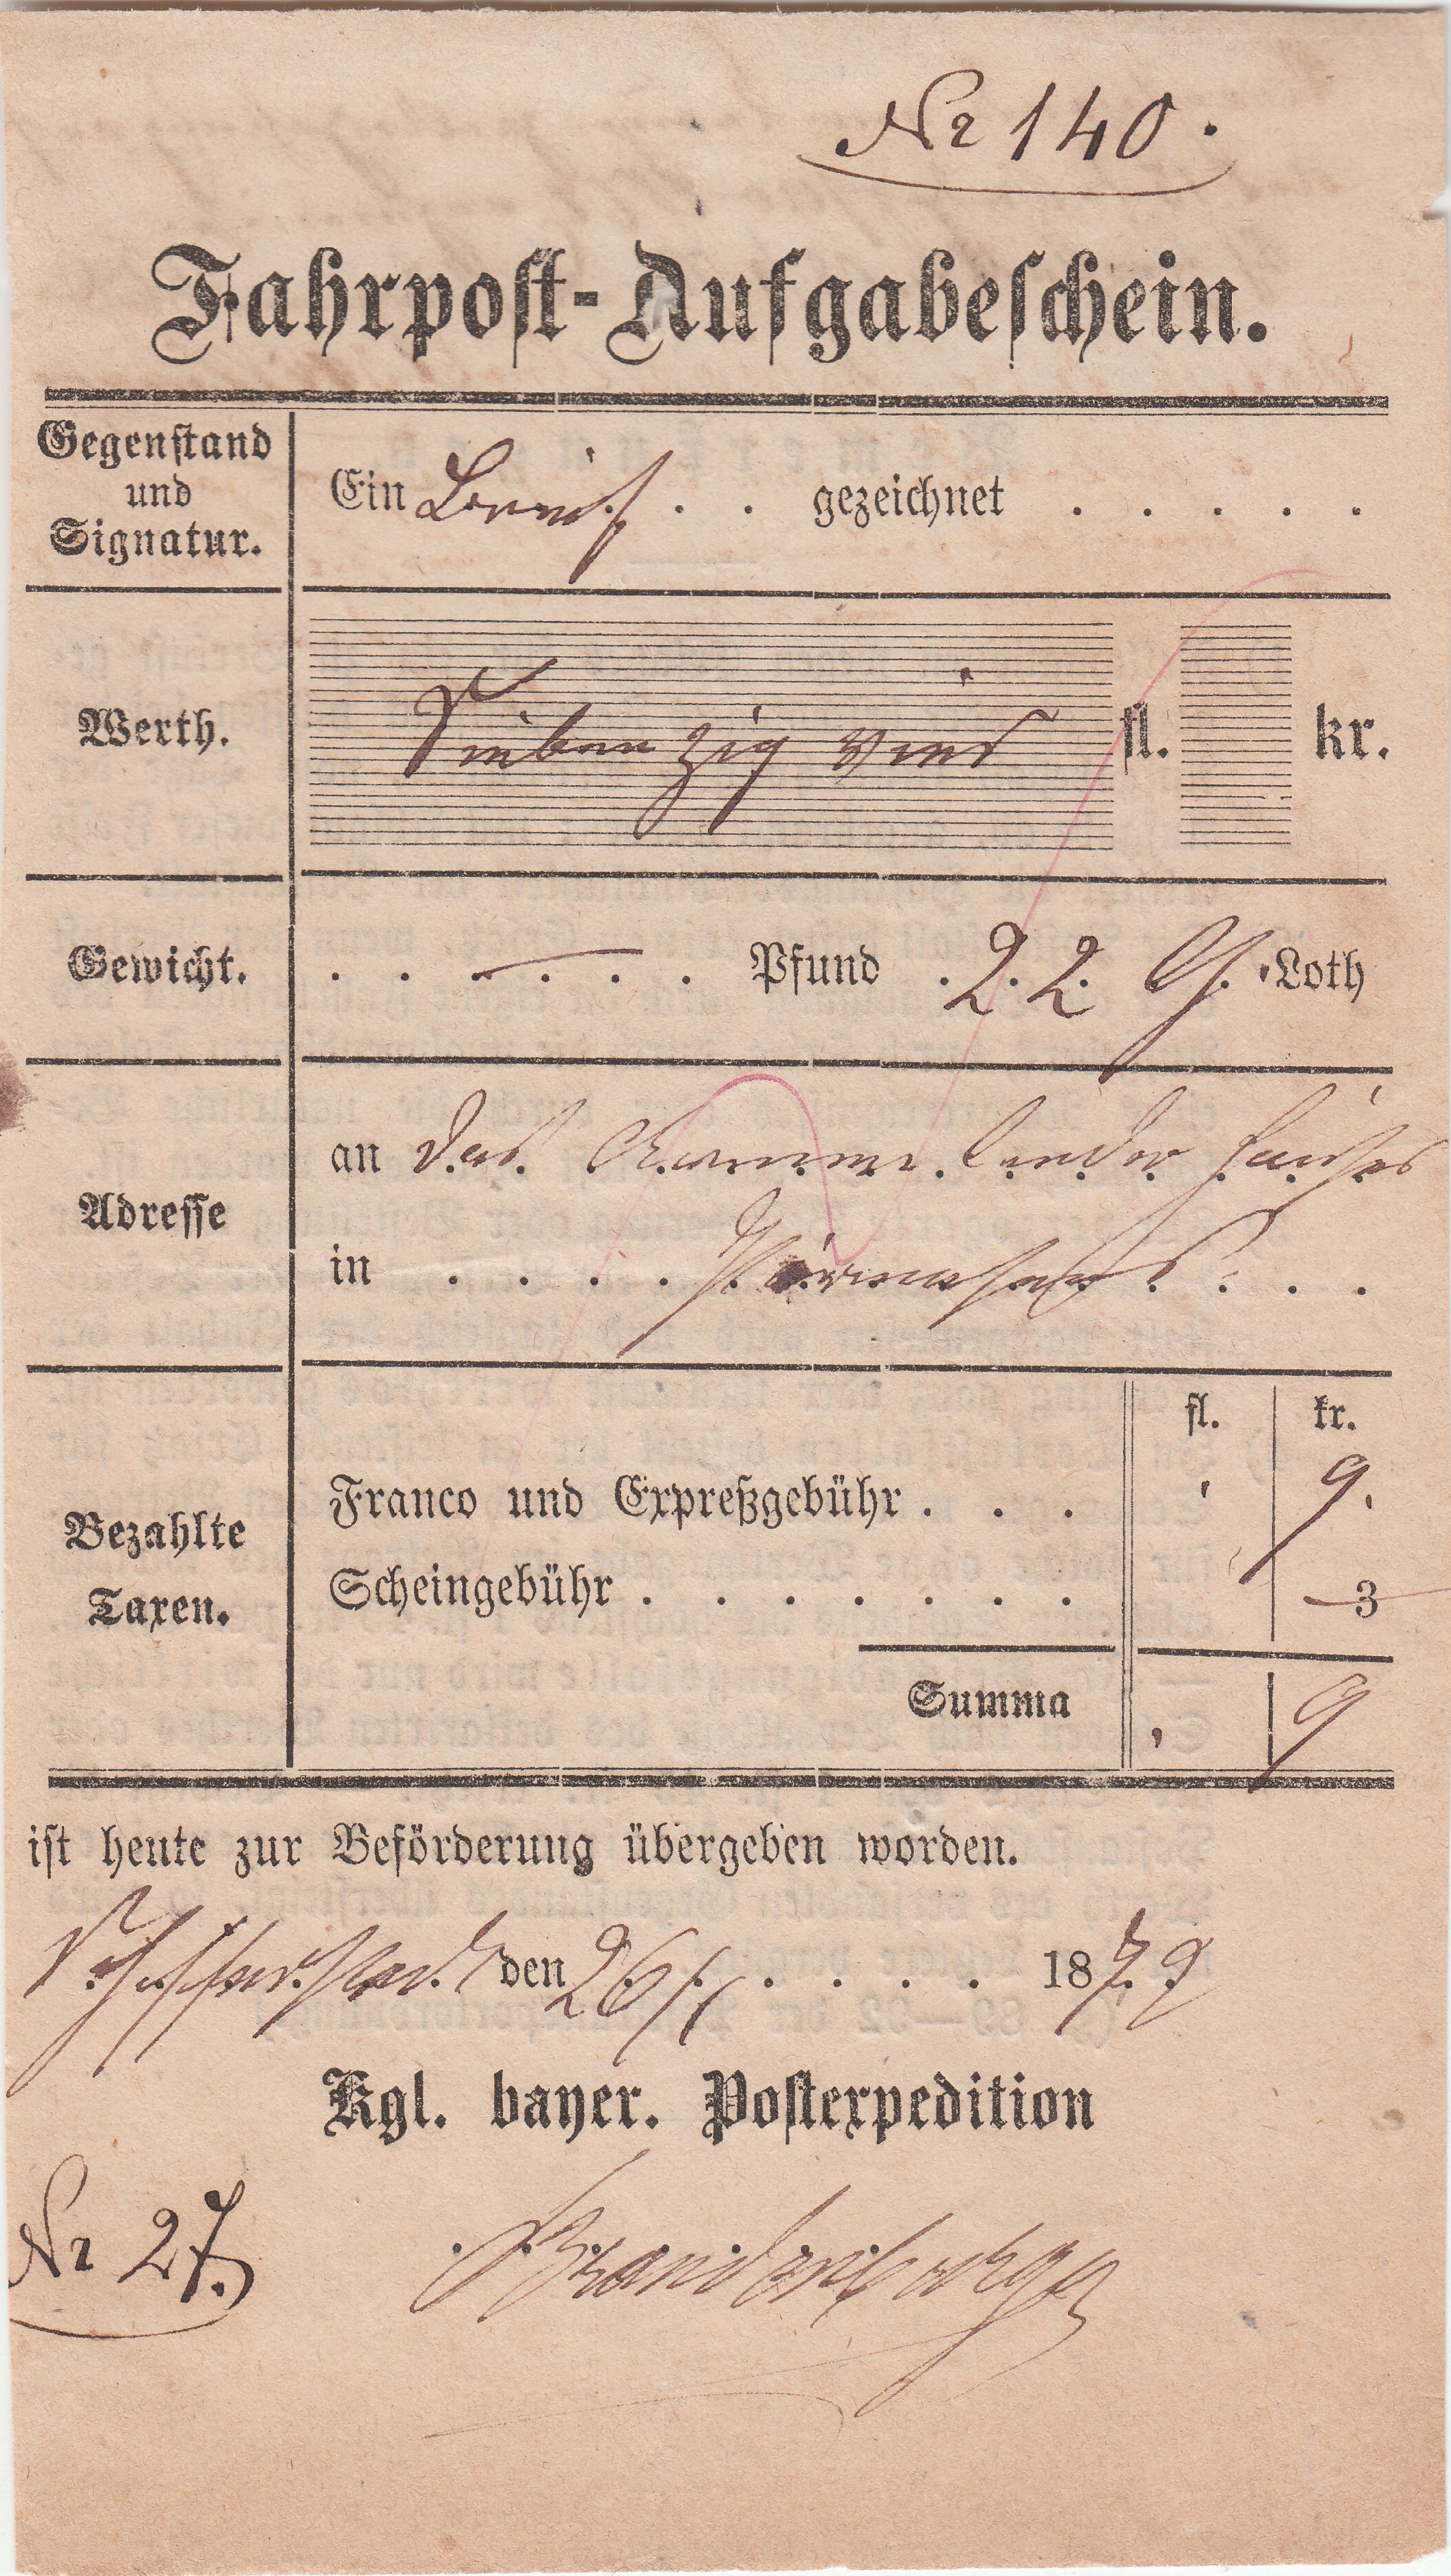 Nr 140.
Fahrpost-Aufgabeschein.
Gegenstand
und
Signatur.
Ein Brief . . gezeichnet . . . . .
Werth.
Siebenzig vier fl. kr.
Gewicht.
. . . . . . Pfund 22 Loth
Adresse
an das
in . . . . Pirmasens . . .
fl. kr.
Bezahlte
Taxen.
Franco und Expreßgebühr . . . 9.
Scheingebühr . . . . . . . 3
Summa 9
ist heute zur Beförderung übergeben worden.
den 26/1 . . . . 1872
Kgl. bayer. Postexpedition
Nr 27.
Brandenburger